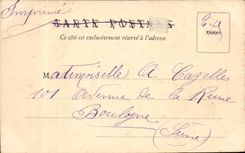 Imprimé
CARTE POSTALE
Ce côté est exclusivement réservé à l'adresse
Mademoiselle A. Cazelles
101 Avenue de la Reine
Boulogne
(Seine)